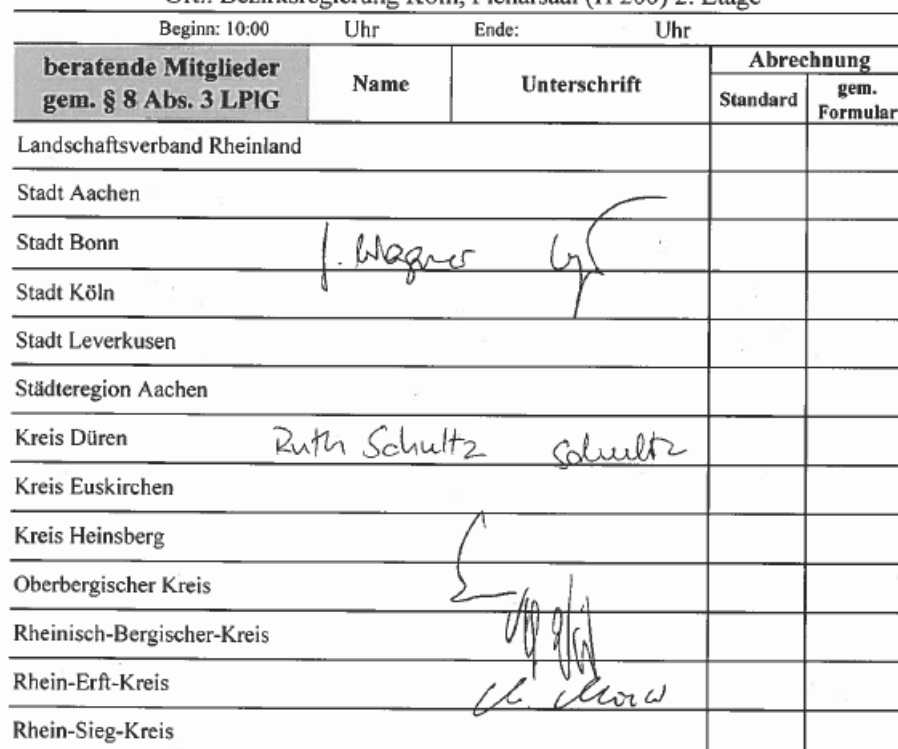 Ort: Bezirksregierung Köln, Plenarsaal (H 200) 2. Etage
Beginn: 10:00 Uhr Ende: Uhr
beratende Mitglieder gem. § 8 Abs. 3 LPlG
Name
Unterschrift
Abrechnung
Standard
gem. Formular
Landschaftsverband Rheinland
Stadt Aachen
Stadt Bonn J. Wagner
Stadt Köln
Stadt Leverkusen
Städteregion Aachen
Kreis Düren Ruth Schultz Schultz
Kreis Euskirchen
Kreis Heinsberg
Oberbergischer Kreis
Rheinisch-Bergischer-Kreis
Rhein-Erft-Kreis
Rhein-Sieg-Kreis